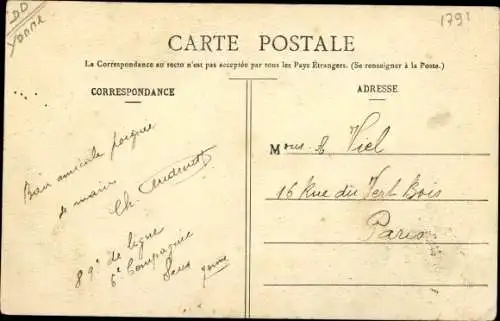 DD
YONNE
1791
CARTE POSTALE
La Correspondance au recto n'est pas acceptée par tous les Pays Étrangers. (Se renseigner à la Poste.)
CORRESPONDANCE
Bien amicale poignée
de main
89e de ligne
6e Compagnie
Sens Yonne
ADRESSE
Mons. Viel
16 Rue du Vert Bois
Paris